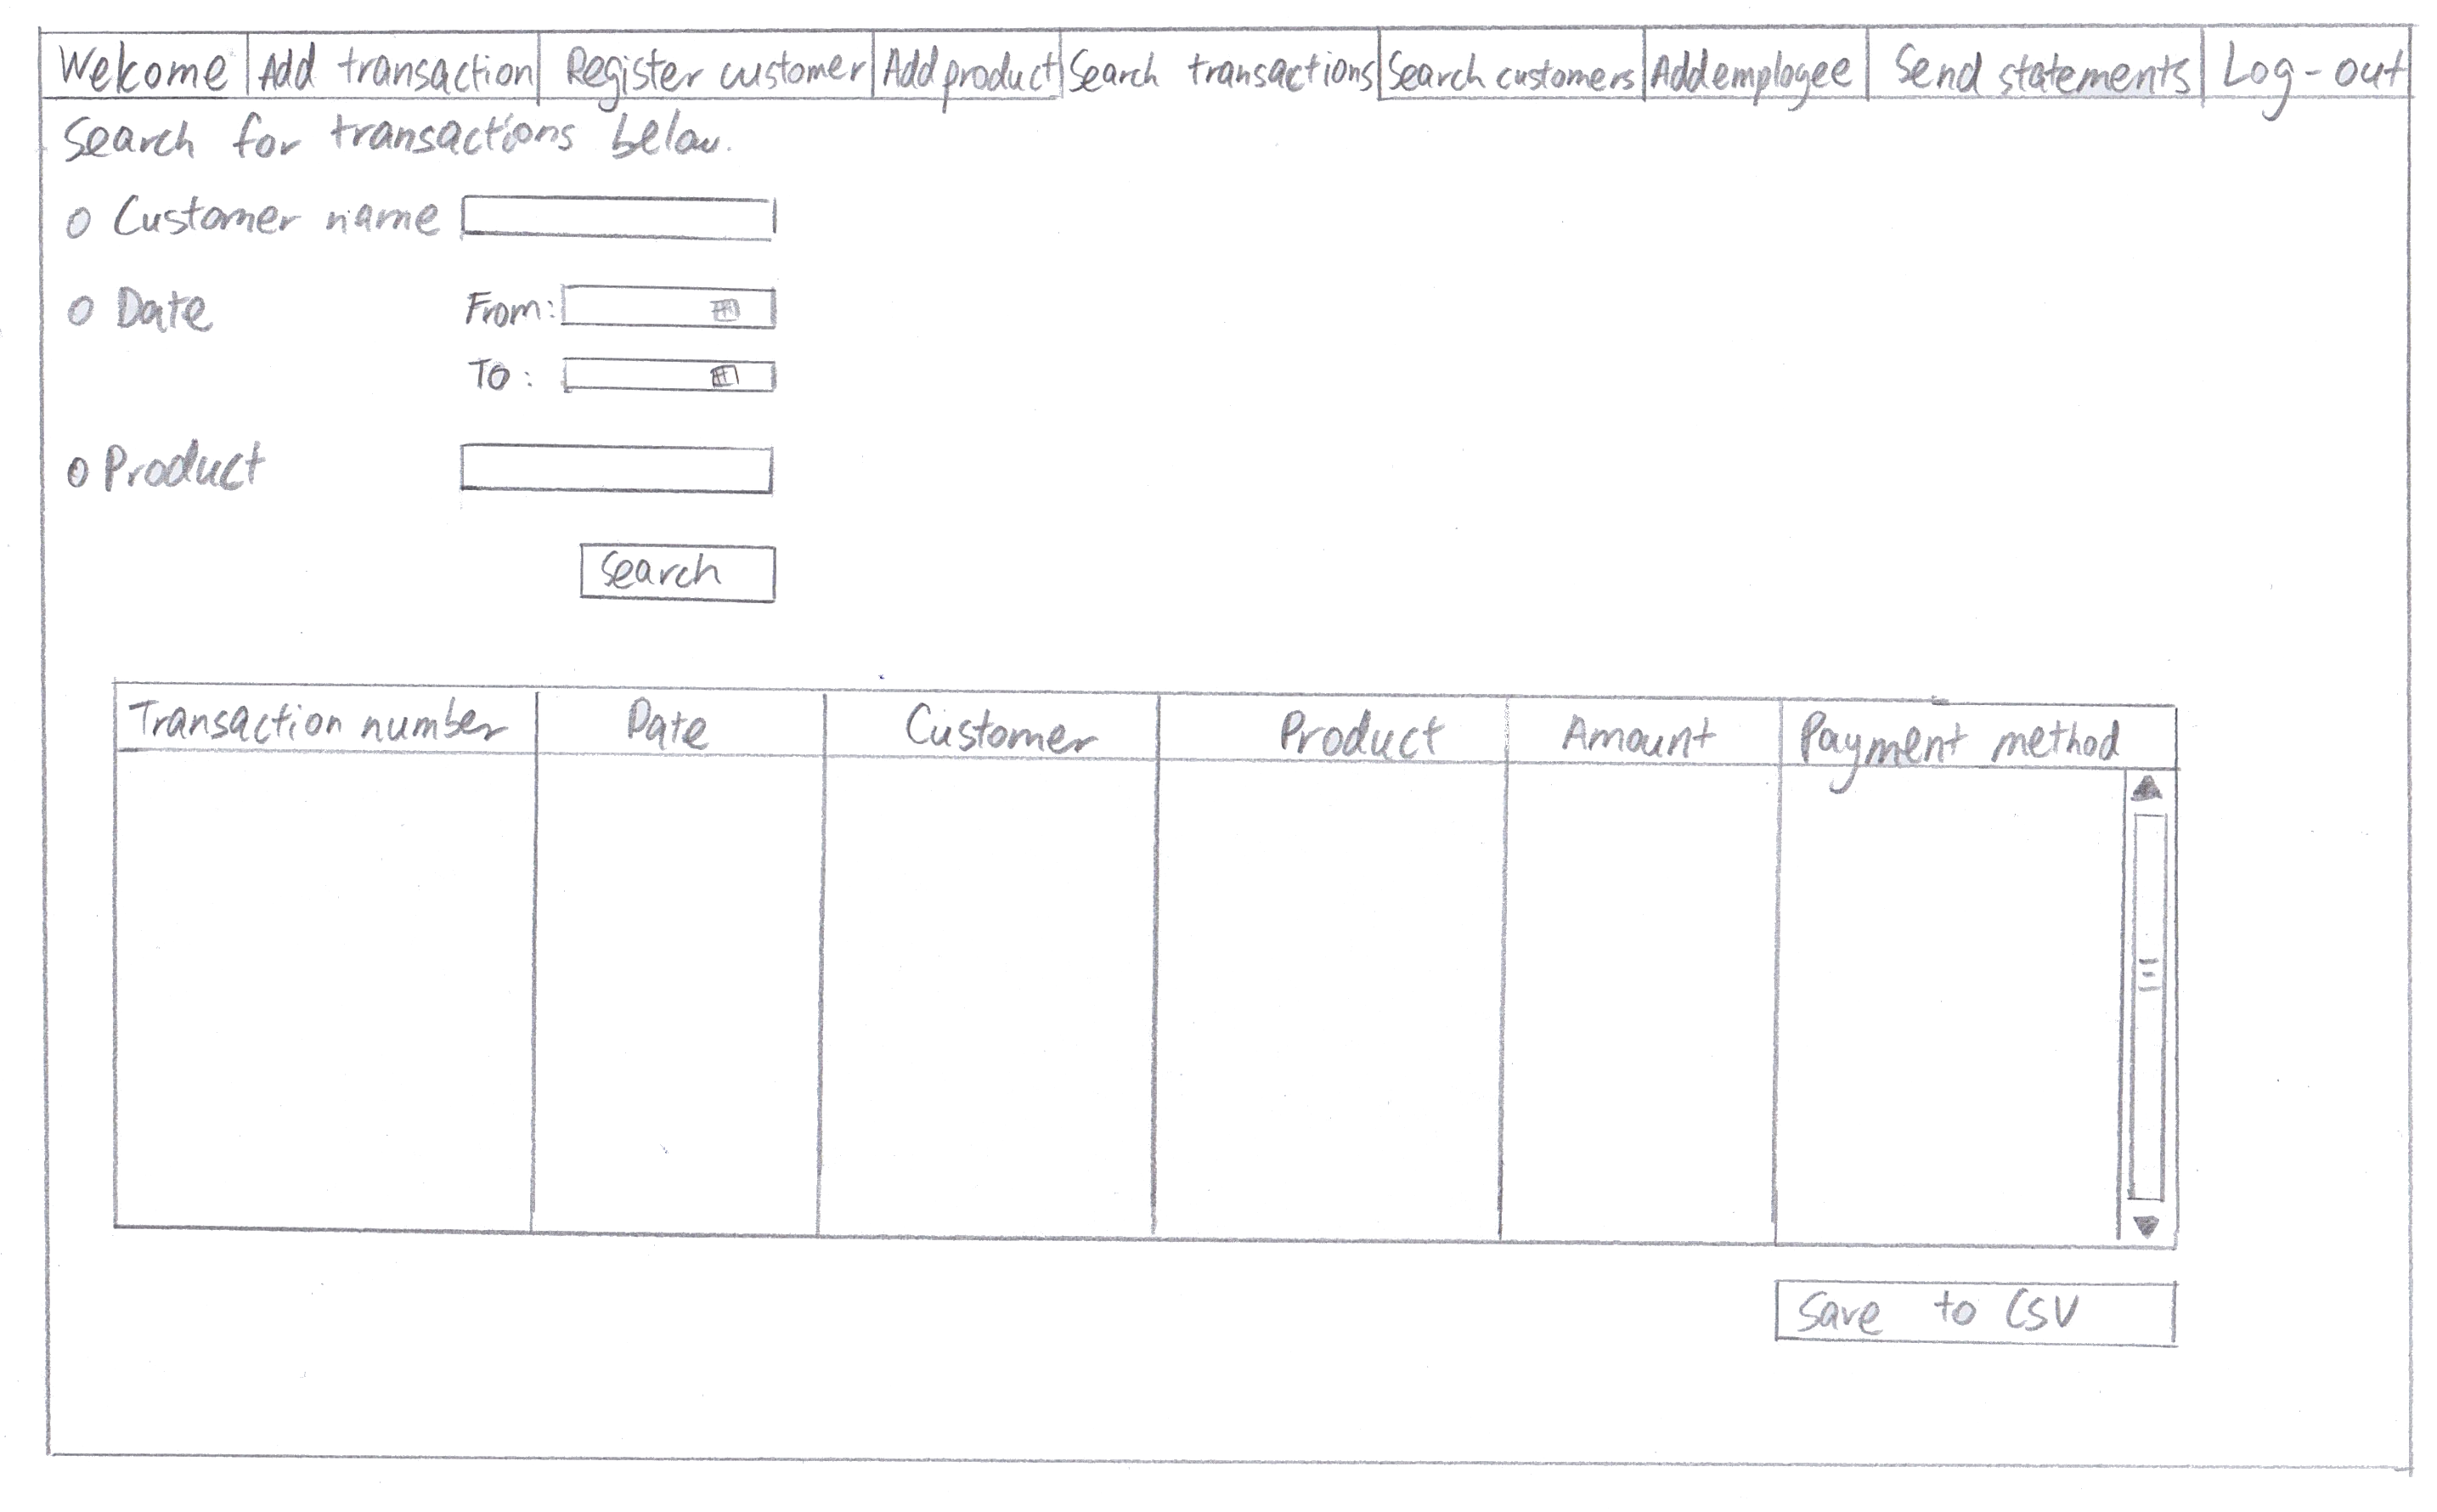 Welcome Add transaction Register customer Add product Search transactions Search customers Add employee Send statements Log-out
Search for transactions below.
Customer name
Date From:
To:
Product
Search
Transaction number Date Customer Product Amount Payment method
Save to CSV